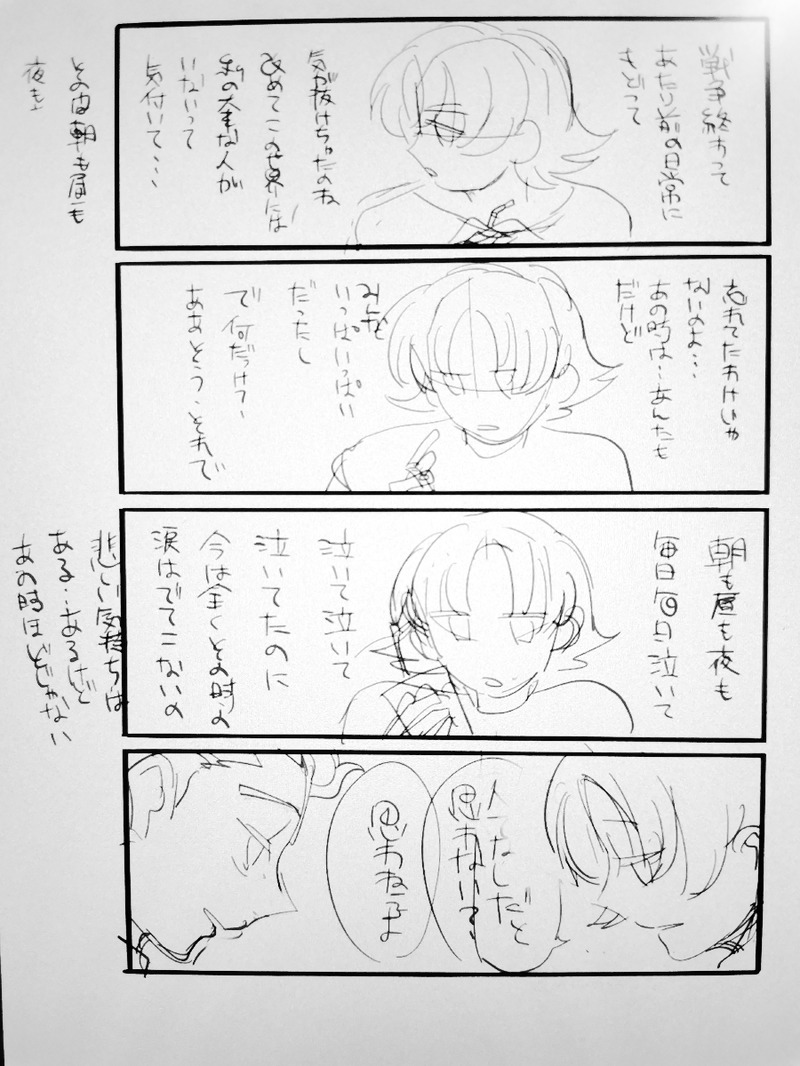 戦争終わって
あたり前の日常に
もどって
気が抜けちゃったのね
改めてこの世界には
私の大事な人が
いないって
気付いて…
その日は朝も昼も
夜も
忘れてたわけじゃ
ないのよ…
あの時は…あんたも
だけど
みんな
いっぱいいっぱい
だったし
で何だっけ?
ああそう、それで
朝も昼も夜も
毎日毎日泣いて
泣いて泣いて
泣いてたのに
今は全くその時の
涙はでてこないの
悲しい気持ちは
ある…あるけど
あの時ほどじゃない
人でなしだと
思わないで
思わねェよ